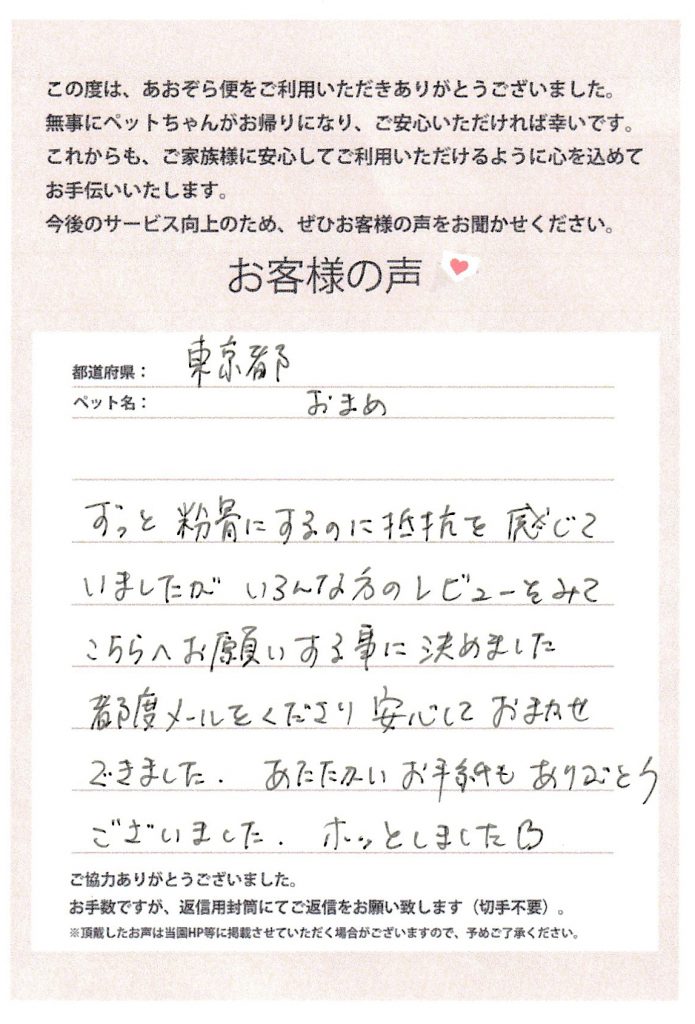 この度は、あおぞら便をご利用いただきありがとうございました。
無事にペットちゃんがお帰りになり、ご安心いただければ幸いです。
これからも、ご家族様に安心してご利用いただけるように心を込めて
お手伝いいたします。
今後のサービス向上のため、ぜひお客様の声をお聞かせください。
お客様の声
都道府県： 東京都
ペット名： おまめ
ずっと 粉骨にするのに抵抗を 感じて
いましたが いろんな方のレビューをみて
こちらへお願いする事に決めました
都度メールをくださり 安心して おまかせ
できました. あたたかい お手紙も ありがとう
ございました. ホッとしました
ご協力ありがとうございました。
お手数ですが、返信用封筒にてご返信をお願い致します（切手不要）。
※頂戴したお声は当園HP等に掲載させていただく場合がございますので、予めご了承ください。